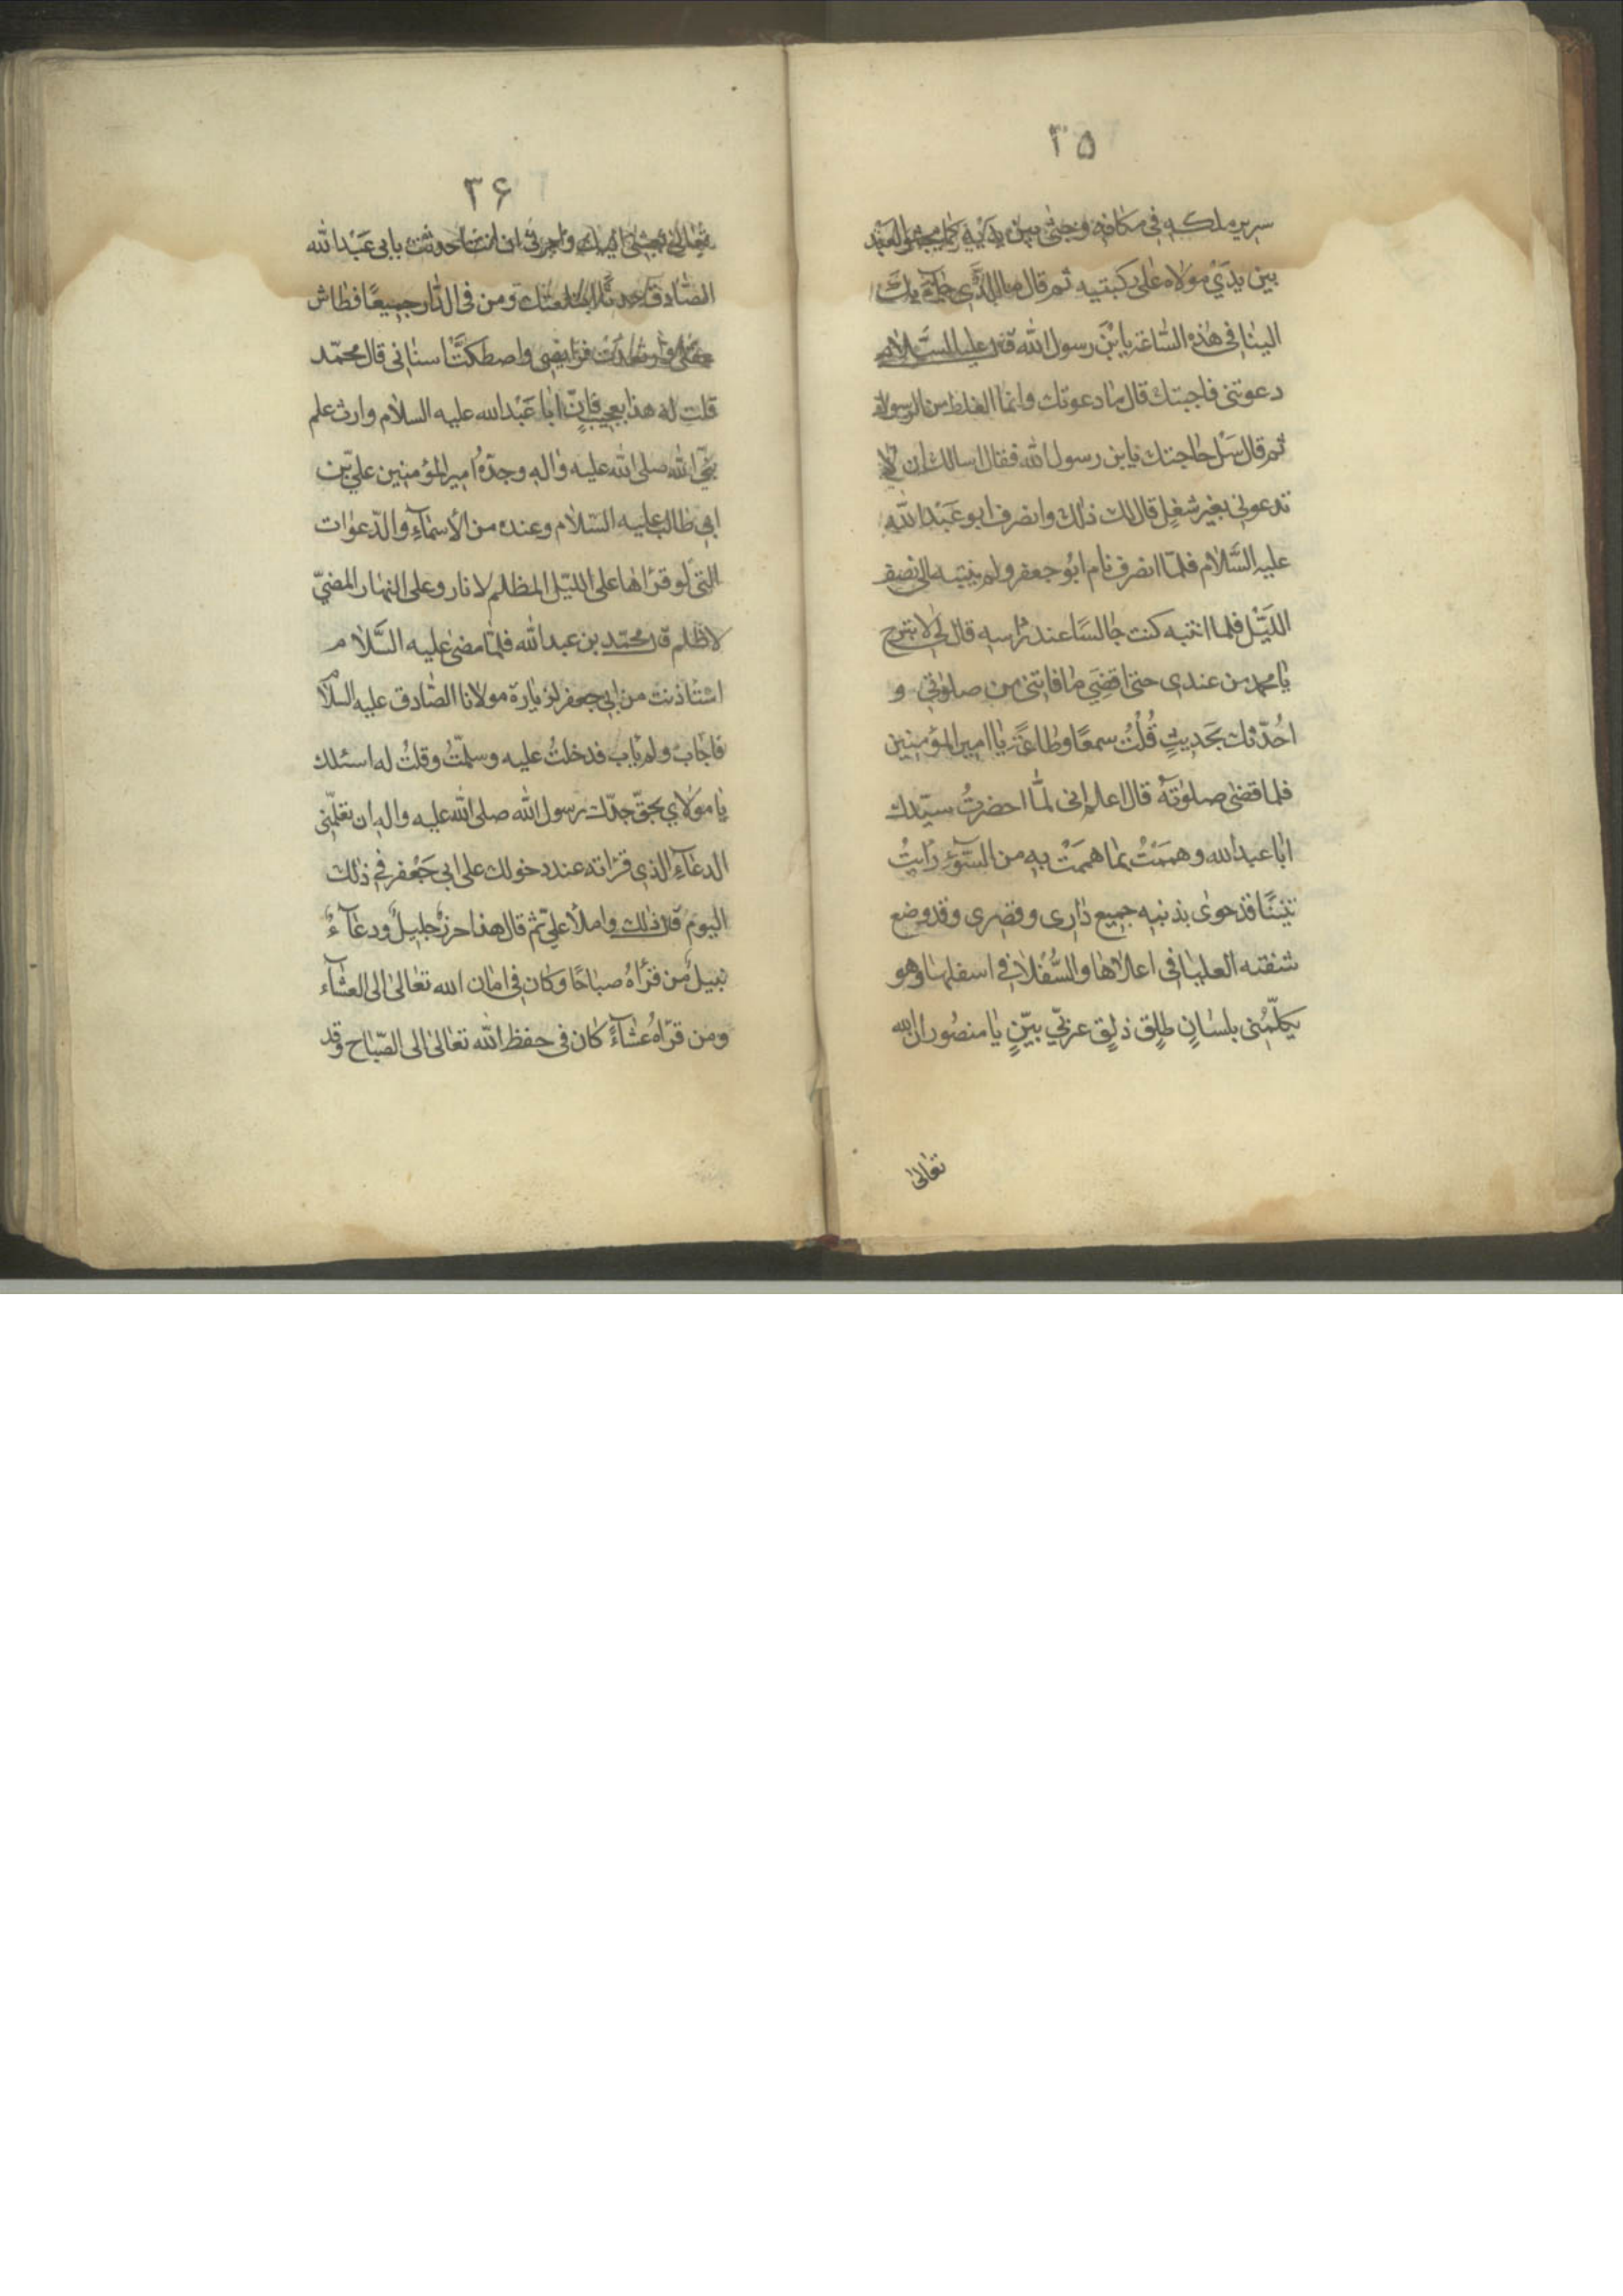 ۳۵
سرير ملكه في مكانه وجثى بين يديه كما يجثو العبد
بين يدي مولاه على ركبتيه ثم قال ما الذي جاء بك
الينا في هذه الساعة يا بْنَ رسول الله قال عليه السَّلام
دعوتني فاجبتك قال ما دعوتك وانما الغلط من الرسول
ثم قال سَلْ حاجتك يا بن رسول الله فقال اسالك ان لا
تدعوني بغير شغلٍ قال لك ذلك وانصرف ابو عَبْد الله
عليه السَّلام فلمّا انصرف نام ابُو جعفر ولم ينتبه الى نصف
اللَيْل فلما انتبه كنت جالسًا عند راسه قال لي لا تبرح
يا محمد من عندي حتى اقضِيَ ما فاتني من صلوتي و
احُدّثك بحَديثٍ قُلْتُ سمعًا وطاعَةً يا امير المؤمنين
فلما قضى صلوٰتَهُ قال اعلم اني لمَّا احضرتُ سيّدك
ابا عبد الله وهممْتُ بما هممْتُ به من السُّوءِ رايتُ
تنينًا قد حوىٰ بذنبه جميع داري وقصري وقد وضع
شفته العليا في اعلاها والسُّفلا في اسفلها وهو
يكلّمُني بلسانٍ طلِقٍ ذلِقٍ عربيّ بيّنٍ يا منصُور ان الله
تعالى
۳۶
تعالى بعثني اليك وامرني ان انت احدثت بابى عَبْد الله
الصادق حدثًا ابتلعتك ومن فى الدّار جميعًا فطاش
عقلى وارتعدت فرايصي واصطكَّت اسناني قال محمّد
قلت له هذا بعجيبٍ فانّ ابا عَبْد الله عليه السلام وارث علم
نبيّ الله صلى الله عليه واله وجدّهُ امير المؤمنين عليّ بن
ابي طالب عليه السّلام وعنده من الأسمآءِ والدّعوات
التي لو قرأها على الليّل المظلم لانار وعلى النهار المضيّ
لاظلم قال محمّد بن عبد الله فلمّا مضى عليه السَّلام
استاذنت من ابي جعفر لزيارة مولانا الصّادق عليه السلام
فاجاب ولم ياب فدخلتُ عليه وسلّمتُ وقلتُ له اسئلك
يا مولاي بحقّ جدّك رسول الله صلى الله عليه واله ان تعلّمني
الدعآءِ الذي قرأته عند دخولك على ابي جَعْفر في ذٰلك
اليوم قال ذلك واملأ عليّ ثم قال هذا حرزٌ جليلٌ ودعآءٌ
نبيلٌ من قرأهُ صباحًا وكان في امان الله تعالىٰ الى العشآء
ومن قرأهُ عشآءً كان في حفظ الله تعالىٰ الى الصّباح وقد